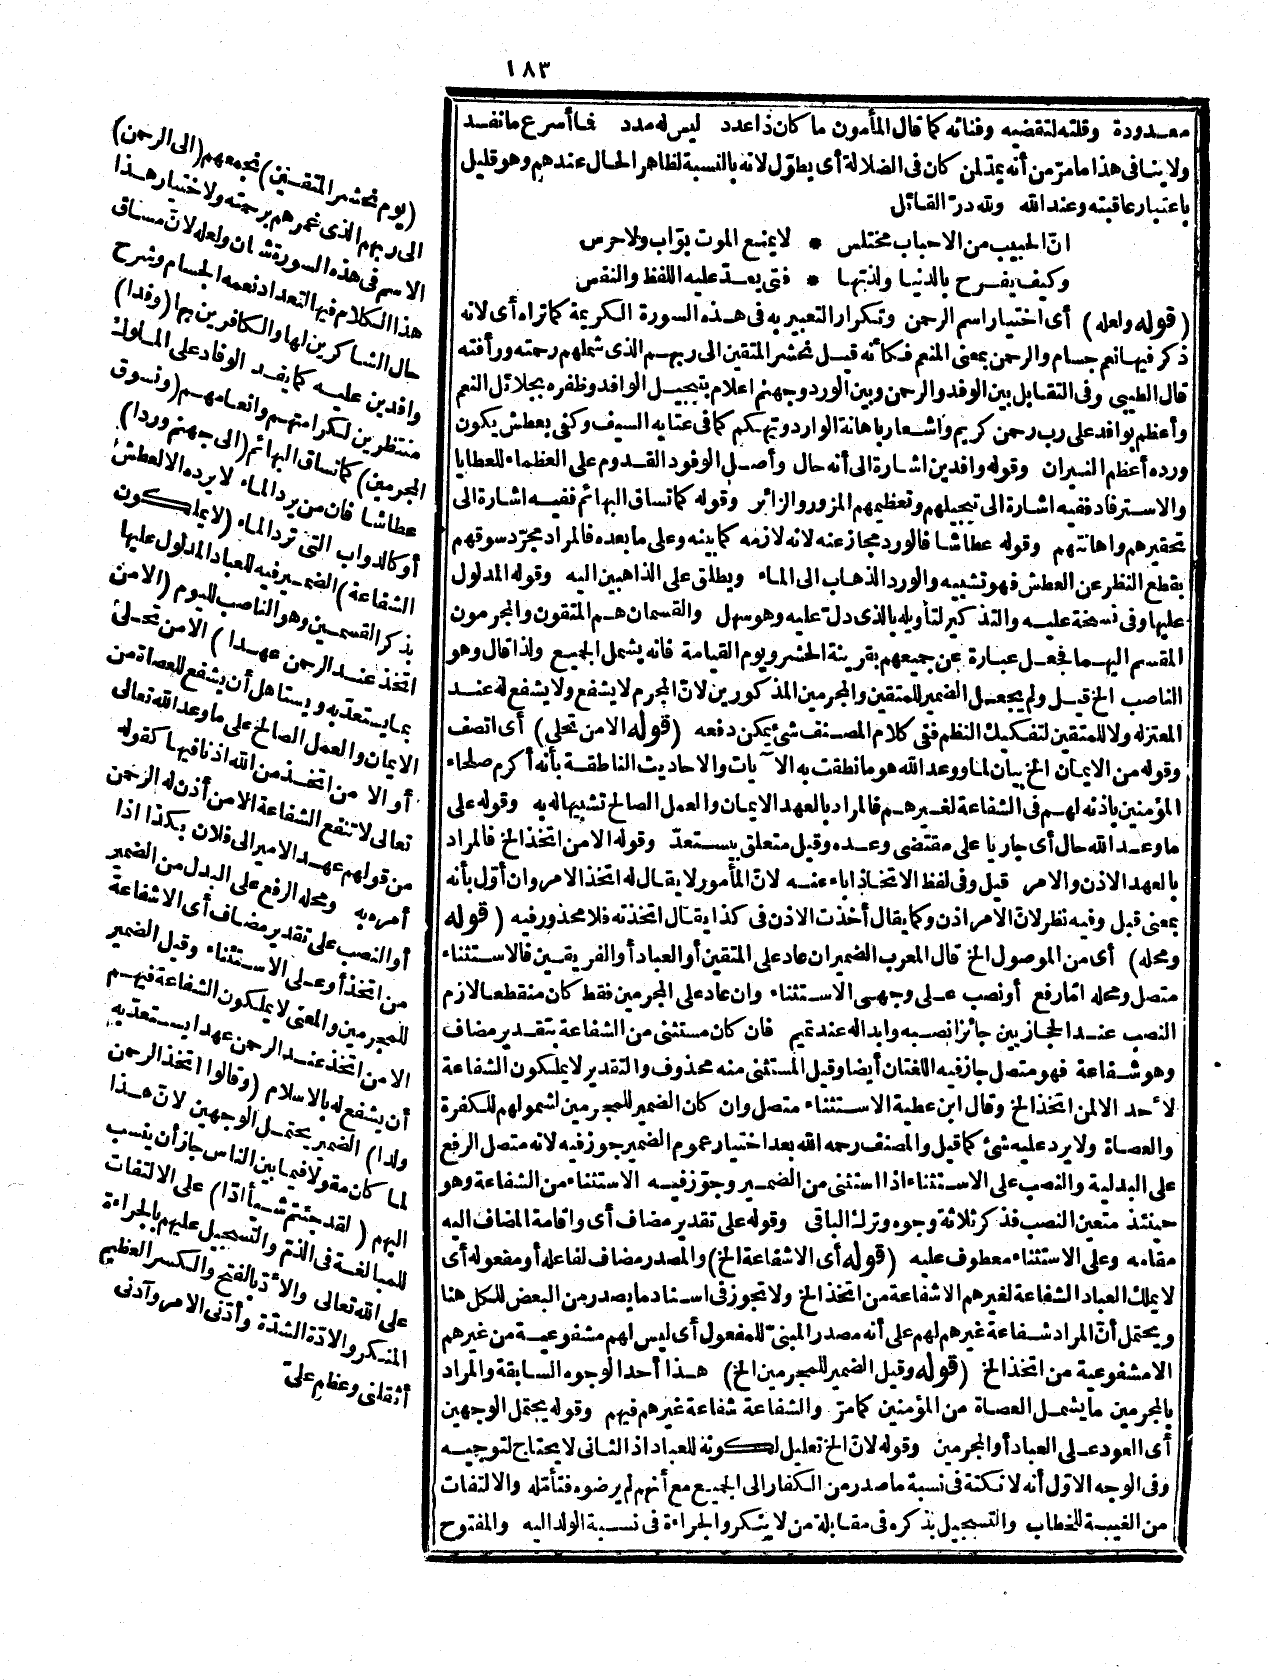 ١٨٣
معدودة وقلته لتقضيه وفنائه كما قال المأمون ما كان ذا عدد ليس له مدد فما أسرع ما نفد
ولا ينافى هذا ما مرّ من أنه يمدّ لمن كان فى الضلالة أى يطوّل لانه بالنسبة لظاهر الحال عندهم وهو قليل
باعتبار عاقبته وعند الله ولله درّ القائل
انّ الحبيب من الاحباب مختلس * لا يمنع الموت بوّاب ولا حرس
وكيف يفرح بالدنيا ولذتها * فتى يعدّ عليه اللفظ والنفس
(قوله ولعله) أى اختيار اسم الرحمن وتكرار التعبير به فى هذه السورة الكريمة كما تراه أى لانه
ذكر فيها نعم جسام والرحمن بمعنى المنعم فكأنه قيل نحشر المتقين الى ربهم الذى شملهم رحمته ورأفته
قال الطيبى وفى التقابل بين الوفد والرحمن وبين الورد وجهنم اعلام بتبجيل الوافد وظفره بجلائل النعم
وأعظم بوافد على رب رحمن كريم واشعار باهانة الوارد وتهكم كما فى عتابه السيف وكفى بعطش يكون
ورده أعظم النيران وقوله وافدين اشارة الى أنه حال وأصل الوفود القدوم على العظماء للعطايا
والاسترفاد ففيه اشارة الى تبجيلهم وتعظيمهم المزور والزائر وقوله كما تساق البهائم ففيه اشارة الى
تحقيرهم واهانتهم وقوله عطاشا فالورد مجاز عنه لانه لازمه كما بينه وعلى ما بعده فالمراد مجرّد سوقهم
بقطع النظر عن العطش فهو تشبيه والورد الذهاب الى الماء ويطلق على الذاهبين اليه وقوله المدلول
عليها وفى نسخة عليه والتذكير لتأويله بالذى دلت عليه وهو سهل والقسمان هم المتقون والمجرمون
المقسم اليهما فجعل عبارة عن جميعهم بقرينة الحشر ويوم القيامة فانه يشمل الجميع ولذا قال وهو
الناصب الخ قيل ولم يجعل الضمير للمتقين والمجرمين المذكورين لانّ المجرم لا يشفع ولا يشفع له عند
المعتزله ولا للمتقين لتفكيك النظم ففى كلام المصنف شئ يمكن دفعه (قوله الا من تحلى) أى اتصف
وقوله من الايمان الخ بيان لما ووعد الله هو ما نطقت به الآيات والاحاديث الناطقة بأنه أكرم صلحاء
المؤمنين باذنه لهم فى الشفاعة لغيرهم فالمراد بالعهد الايمان والعمل الصالح تشبيها له به وقوله على
ما وعد الله حال أى جاريا على مقتضى وعده وقيل متعلق بيستعدّ وقوله الا من اتخذ الخ فالمراد
بالعهد الاذن والامر قيل وفى لفظ الاتخاذ اباء عنه لانّ المأمور لا يقال له اتخذ الامر وان أوّل بأنه
بمعنى قبل وفيه نظر لانّ الامر اذن وكما يقال أخذت الاذن فى كذا يقال اتخذته فلا محذور فيه (قوله
ومحله) أى من الموصول الخ قال المعرب الضميران عاد على المتقين أو العباد أو الفريقين فالاستثناء
متصل ومحله امّا رفع أو نصب على وجهى الاستثناء وان عاد على المجرمين فقط كان منقطعا لازم
النصب عند الحجازيين جائزا نصبه وابداله عند تميم فان كان مستثنى من الشفاعة بتقدير مضاف
وهو شفاعة فهو متصل جاز فيه اللغتان أيضا وقيل المستثنى منه محذوف والتقدير لا يملكون الشفاعة
لأحد الا لمن اتخذ الخ وقال ابن عطية الاستثناء متصل وان كان الضمير للمجرمين لشمولهم للكفرة
والعصاة ولا يرد عليه شئ كما قيل والمصنف رحمه الله بعد اختيار عموم الضمير جوز فيه لانه متصل الرفع
على البدلية والنصب على الاستثناء اذا استثنى من الضمير وجوّز فيه الاستثناء من الشفاعة وهو
حينئذ متعين النصب فذكر ثلاثة وجوه وترك الباقى وقوله على تقدير مضاف أى واقامة المضاف اليه
مقامه وعلى الاستثناء معطوف عليه (قوله أى الا شفاعة الخ) والمصدر مضاف لفاعله أو مفعوله أى
لا يملك العباد الشفاعة لغيرهم الا شفاعة من اتخذ الخ ولا تجوز فى اسناد ما يصدر من البعض للكل هنا
ويحتمل أنّ المراد شفاعة غيرهم لهم على أنه مصدر المبنىّ للمفعول أى ليس لهم مشفوعية من غيرهم
الا مشفوعية من اتخذ الخ (قوله وقيل الضمير للمجرمين الخ) هذا أحد الوجوه السابقة والمراد
بالمجرمين ما يشمل العصاة من المؤمنين كما مرّ والشفاعة شفاعة غيرهم فيهم وقوله يحتمل الوجهين
أى العود على العباد أو المجرمين وقوله لانّ الخ تعليل لكونه للعباد اذ الثانى لا يحتاج لتوجيه
وفى الوجه الاوّل أنه لا نكتة فى نسبة ما صدر من الكفار الى الجميع مع أنهم لم يرضوه فتأمّله والالتفات
من الغيبة للخطاب والتسجيل بذكره فى مقابلة من لا ينكر والجراءة فى نسبة الولد اليه والمفتوح
(يوم نحشر المتقين) نجمعهم (الى الرحمن)
الى ربهم الذى غمرهم برحمته ولاختيار هذا
الاسم فى هذه السورة شان ولعله لانّ مساق
هذا الكلام فيها لتعداد نعمه الجسام وشرح
حال الشاكرين لها والكافرين بها (وفدا)
وافدين عليه كما يفد الوفاد على الملوك
منتظرين لكرامتهم وانعامهم (ونسوق
المجرمين) كما تساق البهائم (الى جهنم وردا)
عطاشا فان من يرد الماء لا يرده الا لعطش
أو كالدواب التى ترد الماء (لا يملكون
الشفاعة) الضمير فيه للعباد المدلول عليها
بذكر القسمين وهو الناصب لليوم (الا من
اتخذ عند الرحمن عهدا) الا من تحلى
بما يستعدّ به ويستاهل أن يشفع للعصاة من
الايمان والعمل الصالح على ما وعد الله تعالى
أو الا من اتخذ من الله اذنا فيها كقوله
تعالى لا تنفع الشفاعة الا من أذن له الرحمن
من قولهم عهد الامير الى فلان بكذا اذا
أمره به ومحله الرفع على البدل من الضمير
أو النصب على تقدير مضاف أى الا شفاعة
من اتخذ أو على الاستثناء وقيل الضمير
للمجرمين والمعنى لا يملكون الشفاعة فيهم
الا من اتخذ عند الرحمن عهدا يستعدّ به
أن يشفع له بالاسلام (وقالوا اتخذ الرحمن
ولدا) الضمير يحتمل الوجهين لانّ هذا
لما كان مقولا فيما بين الناس جاز أن ينسب
اليهم (لقد جئتم شيأ ادّا) على الالتفات
للمبالغة فى الذمّ والتسجيل عليهم بالجراءة
على الله تعالى والادّ بالفتح والكسر العظيم
المنكر والادّة الشدّة وأدّنى الامر وآدنى
أثقلنى وعظم علىّ